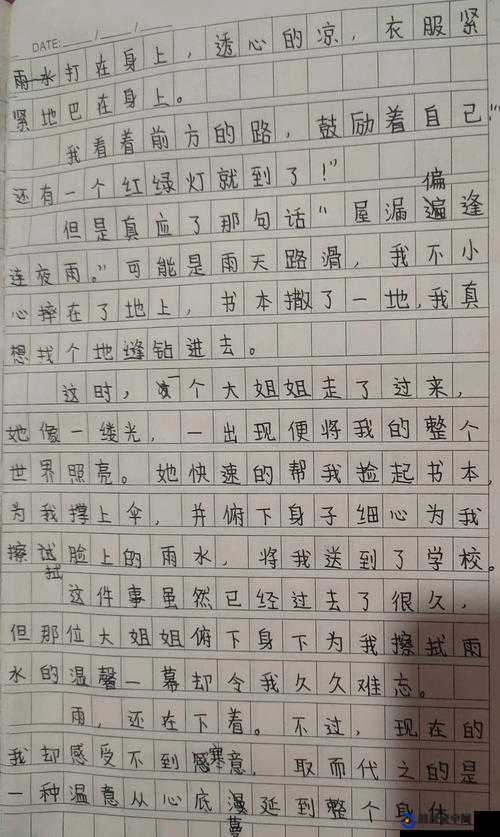 DATE: / /
雨水打在身上，透心的凉，衣服紧
紧地巴在身上。
我看着前方的路，鼓励着自己："
还有一个红绿灯就到了！"
偏
但是真应了那句话"屋漏遍逢
连夜雨。"可能是雨天路滑，我不小
心摔在了地上，书本撒了一地，我真
想找个地缝钻进去。
这时，一个大姐姐走了过来，
她像一缕光，一出现便将我的整个
世界照亮。她快速的帮我捡起书本，
为我撑上伞，并俯下身子细心为我
擦试脸上的雨水，将我送到了学校。
拭
这件事虽然已经过去了很久，
但那位大姐姐俯下身下为我擦拭雨
水的温馨一幕却令我久久难忘。
雨，还在下着。不过，现在的
我却感受不到寒意，取而代之的是
一种温意从心底漫延到整个身体
蔓